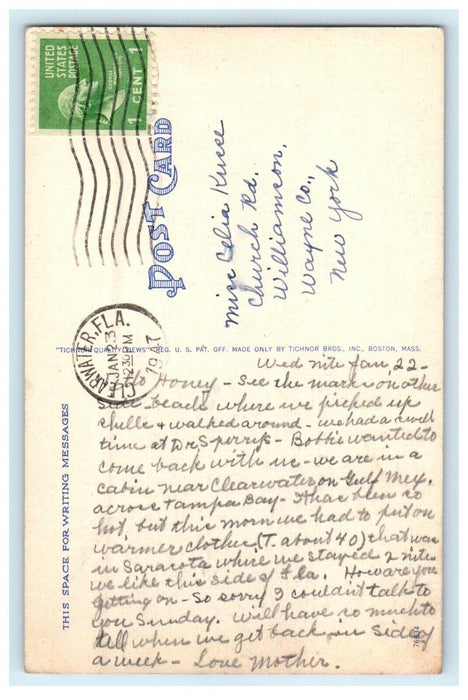 UNITED
STATES
POSTAGE
1 CENT 1
POST CARD
Miss Celia
Church Rd.
Williamson,
Wayne Co.,
New York
CLEARWATER, FLA.
JAN 23
1230 PM
1947
"TICHNOR QUALITY VIEWS" REG. U. S. PAT. OFF. MADE ONLY BY TICHNOR BROS., INC., BOSTON, MASS.
THIS SPACE FOR WRITING MESSAGES
Wed nite Jan 22-
Hello Honey - See the mark on other
side beach where we picked up
shells & walked around - we had a swell
time at Dr - Bobbie wanted to
come back with us - we are in a
cabin near Clearwater on Gulf Mex.
across Tampa Bay - It has been so
hot, but this morn we had to put on
warmer clothes (T. about 40) that was
in Sarasota where we stayed 2 nite
we like this side of Fla. How are you
getting on - So sorry I couldn't talk to
you Sunday. Will have so much to
tell when we get back, in side of
a week - Love Mother.